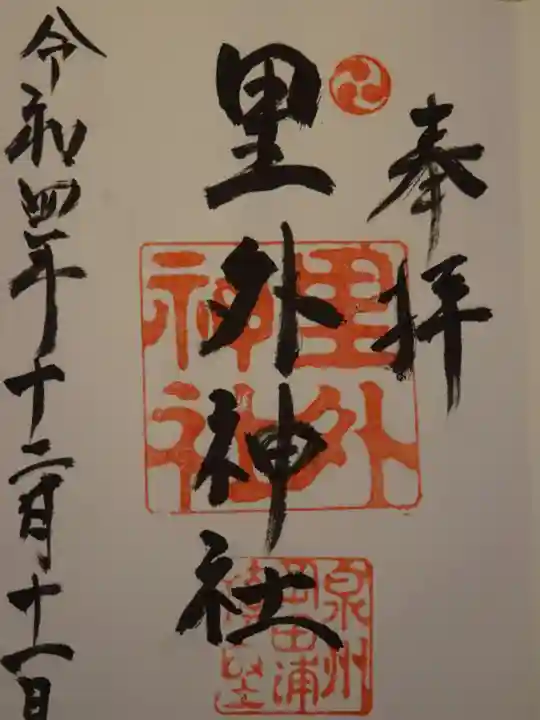 奉拝
里外神社
里外
神社
泉州
岡田浦
令和四年十二月十一日